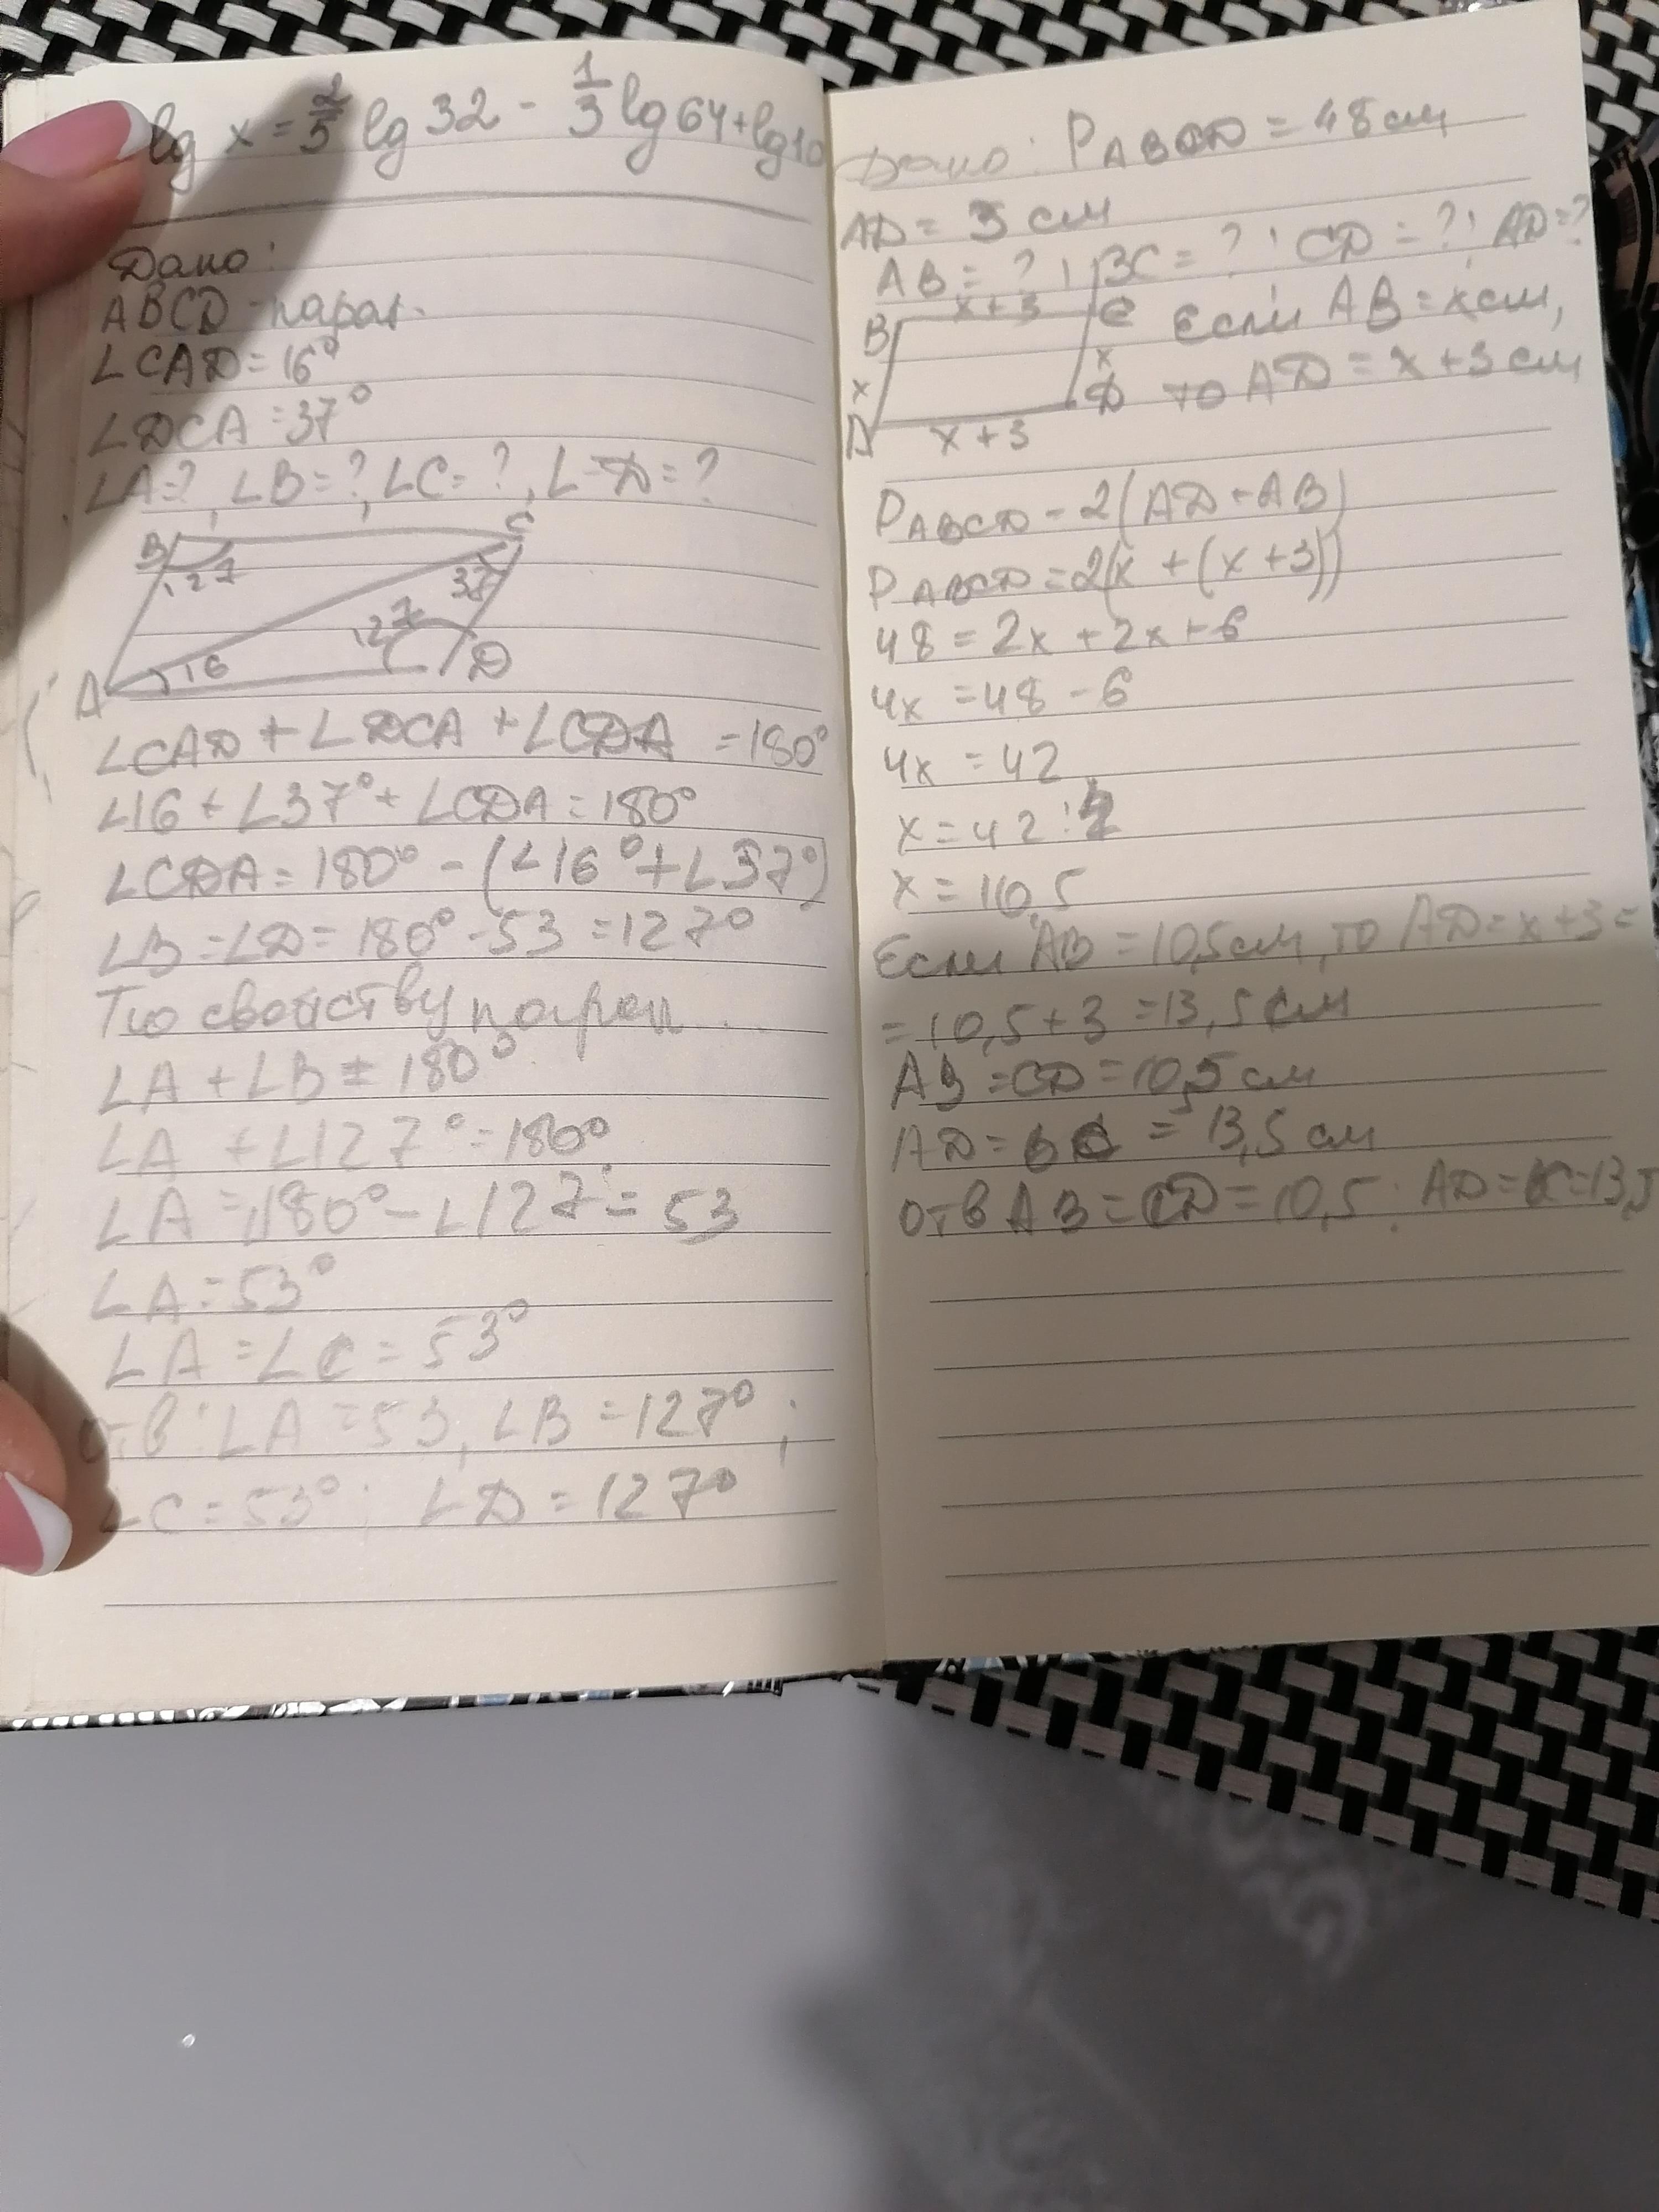 lg x = 2/5 lg 32 - 1/3 lg 64 + lg 10
Дано:
ABCD - парал.
∠CAD = 16°
∠DCA = 37°
∠A = ?, ∠B = ?, ∠C = ?, ∠D = ?
B C
127 37
127
A 16 D
∠CAD + ∠DCA + ∠CDA = 180°
∠16 + ∠37° + ∠CDA = 180°
∠CDA = 180° - (∠16° + ∠37°)
∠B = ∠D = 180° - 53 = 127°
По свойству парал...
∠A + ∠B = 180°
∠A + ∠127° = 180°
∠A = 180° - ∠127° = 53
∠A = 53°
∠A = ∠C = 53°
отв: ∠A = 53, ∠B = 127°;
∠C = 53°; ∠D = 127°
Дано: PABCD = 48 см
AD = 3 см
AB = ?; BC = ?; CD = ?; AD = ?
x+3
B C Если AB = x см,
x x
A D то AD = x + 3 см
x + 3
PABCD = 2(AD + AB)
PABCD = 2(x + (x + 3))
48 = 2x + 2x + 6
4x = 48 - 6
4x = 42
x = 42 : 4
x = 10,5
Если AB = 10,5 см, то AD = x + 3 =
= 10,5 + 3 = 13,5 см
AB = CD = 10,5 см
AD = BC = 13,5 см
отв AB = CD = 10,5; AD = BC = 13,5